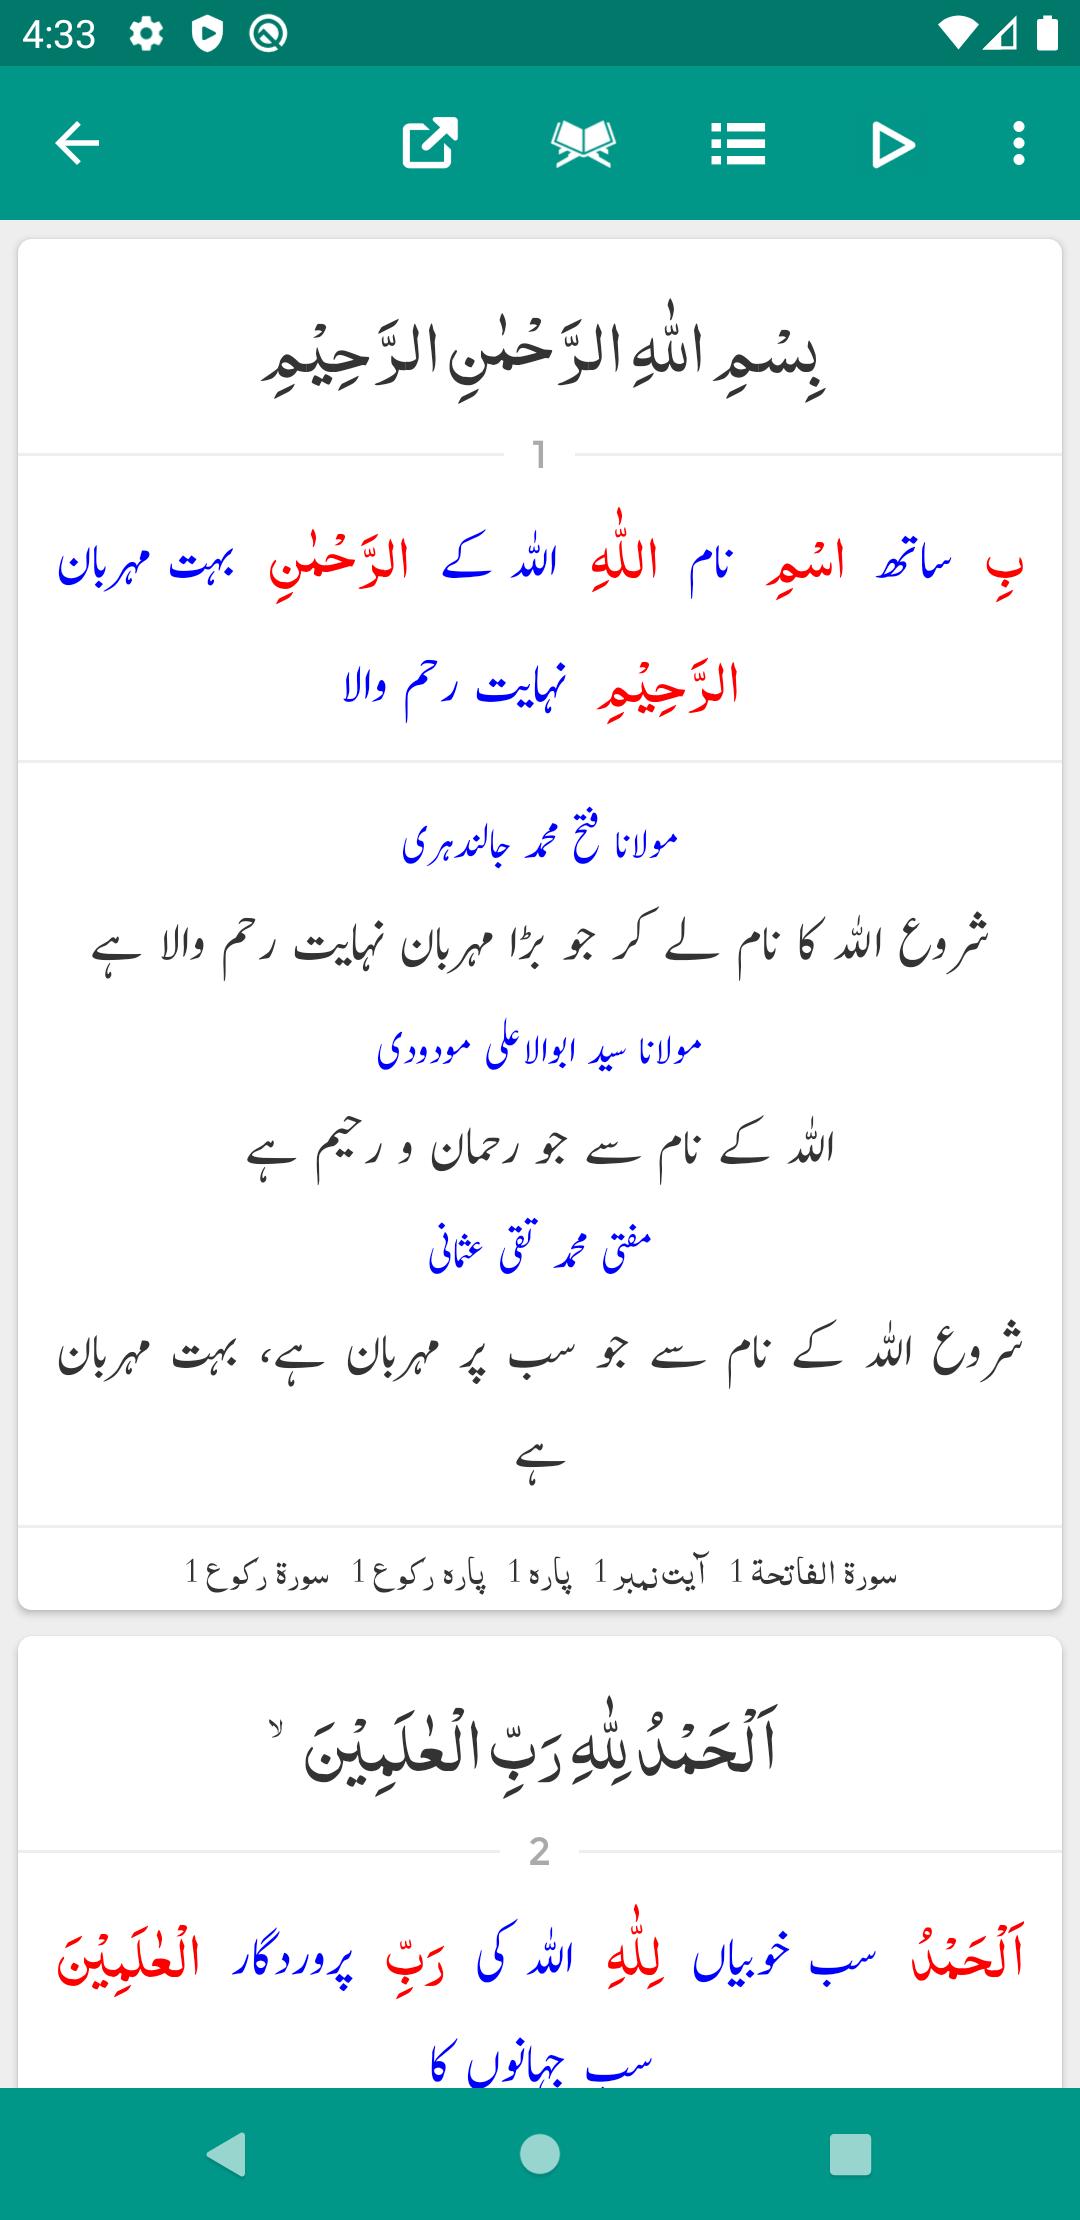 4:33
بِسْمِ اللّٰهِ الرَّحْمٰنِ الرَّحِیْمِ
1
بِ ساتھ اسْمِ نام اللّٰهِ اللہ کے الرَّحْمٰنِ بہت مہربان
الرَّحِیْمِ نہایت رحم والا
مولانا فتح محمد جالندہری
شروع اللہ کا نام لے کر جو بڑا مہربان نہایت رحم والا ہے
مولانا سید ابوالاعلی مودودی
اللہ کے نام سے جو رحمان و رحیم ہے
مفتی محمد تقی عثمانی
شروع اللہ کے نام سے جو سب پر مہربان ہے، بہت مہربان
ہے
سورۃ الفاتحة 1 آیت نمبر 1 پارہ 1 پارہ رکوع 1 سورۃ رکوع 1
اَلْحَمْدُ لِلّٰهِ رَبِّ الْعٰلَمِیْنَ ۙ
2
اَلْحَمْدُ سب خوبیاں لِلّٰهِ اللہ کی رَبِّ پروردگار الْعٰلَمِیْنَ
سب جہانوں کا